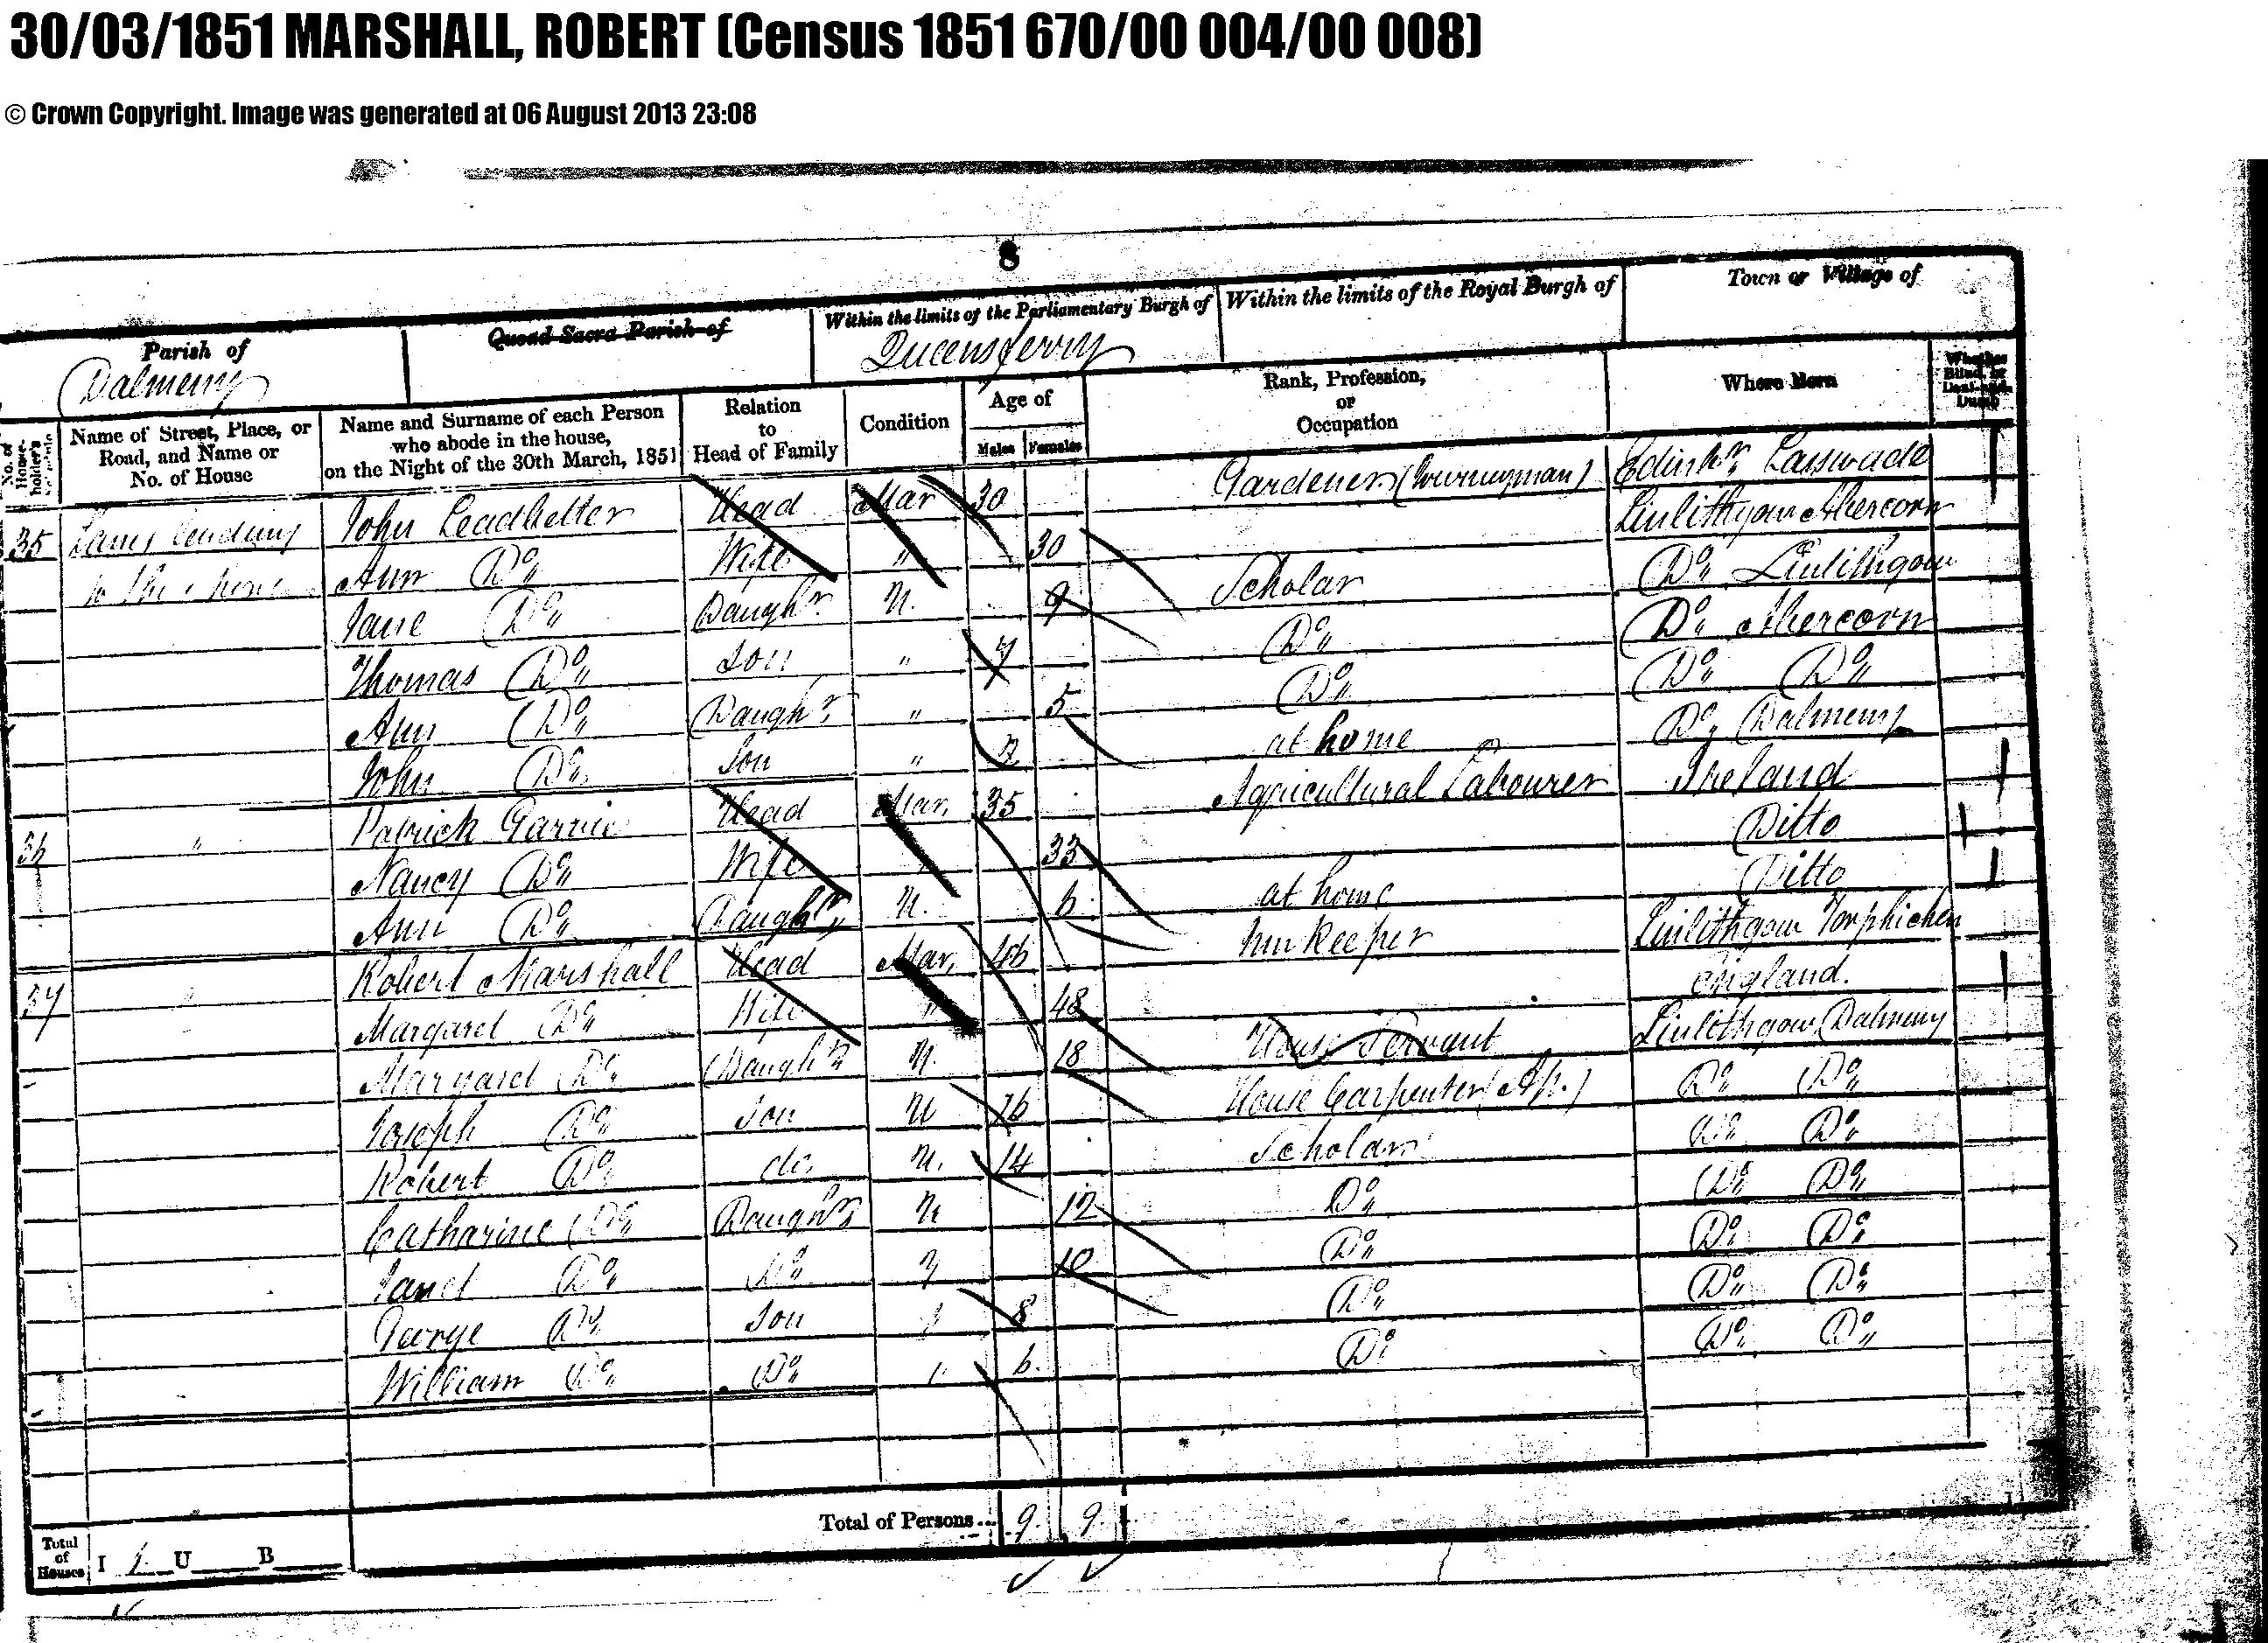 30/03/1851 MARSHALL, ROBERT (Census 1851 670/00 004/00 008)
© Crown Copyright. Image was generated at 06 August 2013 23:08
8
Parish of Quoad Sacra Parish of Within the limits of the Parliamentary Burgh of Within the limits of the Royal Burgh of Town or Village of
Dalmeny Queensferry
No. of Householder's Name of Street, Place, or Road, and Name or No. of House Name and Surname of each Person who abode in the house, on the Night of the 30th March, 1851 Relation to Head of Family Condition Age of Males Females Rank, Profession, or Occupation Where Born Whether Blind, or Deaf-and-Dumb
35 leading John Leadbetter Head Mar 30 Gardener (Journeyman) Edinbr. Lasswade
to the Ann Do Wife " 30 Linlithgow Abercorn
Jane Do Daughr. U. 9 Scholar Do Linlithgow
Thomas Do Son " 7 Do Do Abercorn
Ann Do Daughr. " 5 Do Do Do
John Do Son " 2 at home Do Dalmeny
36 " Patrick Head Mar. 35 Agricultural Labourer Ireland
Nancy Do Wife " 33 Ditto
Ann Do Daughr. U. 6 at home Ditto
37 " Robert Marshall Head Mar. 46 Inn Keeper Linlithgow Torphichen
Margaret Do Wife " 48 England.
Margaret Do Daughr. U. 18 House Servant Linlithgow Dalmeny
Joseph Do Son U 16 House Carpenter (Ap.) Do Do
Robert Do do. U. 14 Scholar Do Do
Catharine Do Daughr. U 12 Do Do Do
Janet Do Do " 10 Do Do Do
George Do Son " 8 Do Do Do
William Do Do " 6. Do Do Do
Total of Persons... 9. 9.
Total of Houses I U B